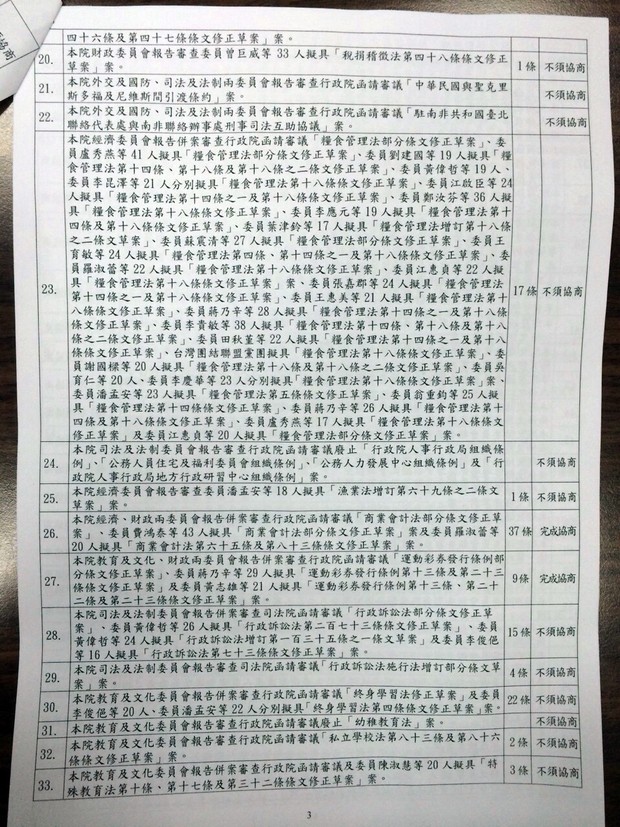 協商
四十六條及第四十七條條文修正草案」案。
20. 本院財政委員會報告審查委員曾巨威等 33 人擬具「稅捐稽徵法第四十八條條文修正草案」案。 1 條 不須協商
21. 本院外交及國防、司法及法制兩委員會報告審查行政院函請審議「中華民國與聖克里斯多福及尼維斯間引渡條約」案。 不須協商
22. 本院外交及國防、司法及法制兩委員會報告審查行政院函請審議「駐南非共和國臺北聯絡代表處與南非聯絡辦事處刑事司法互助協議」案。 不須協商
23. 本院經濟委員會報告併案審查行政院函請審議「糧食管理法部分條文修正草案」、委
員盧秀燕等 41 人擬具「糧食管理法部分條文修正草案」、委員劉建國等 19 人擬具「糧
食管理法第十四條、第十八條及第十八條之二條文修正草案」、委員黃偉哲等 19 人、
委員李昆澤等 21 人分別擬具「糧食管理法第十八條條文修正草案」、委員江啟臣等 24
人擬具「糧食管理法第十四條之一及第十八條條文修正草案」、委員鄭汝芬等 36 人擬
具「糧食管理法第十八條條文修正草案」、委員李應元等 19 人擬具「糧食管理法第十
四條及第十八條條文修正草案」、委員葉津鈴等 17 人擬具「糧食管理法增訂第十八條
之二條文草案」、委員蘇震清等 27 人擬具「糧食管理法部分條文修正草案」、委員王
育敏等 24 人擬具「糧食管理法第四條、第十四條之一及第十八條條文修正草案」、委
員羅淑蕾等 22 人擬具「糧食管理法第十八條條文修正草案」、委員江惠貞等 22 人擬
具「糧食管理法第十八條條文修正草案」案、委員張嘉郡等 24 人擬具「糧食管理法
第十四條之一及第十八條條文修正草案」、委員王惠美等 21 人擬具「糧食管理法第十
八條條文修正草案」、委員蔣乃辛等 28 人擬具「糧食管理法第十四條之一及第十八條
條文修正草案」、委員李貴敏等 38 人擬具「糧食管理法第十四條、第十八條及第十八
條之二條文修正草案」、委員田秋堇等 22 人擬具「糧食管理法第十四條之一及第十八
條條文修正草案」、台灣團結聯盟黨團擬具「糧食管理法第十八條條文修正草案」、委
員謝國樑等 20 人擬具「糧食管理法第十八條及第十八條之二條文修正草案」、委員吳
育仁等 20 人、委員李慶華等 23 人分別擬具「糧食管理法第十八條條文修正草案」案、
委員潘孟安等 23 人擬具「糧食管理法第五條條文修正草案」、委員翁重鈞等 25 人擬
具「糧食管理法第十四條條文修正草案」、委員蔣乃辛等 26 人擬具「糧食管理法第十
四條及第十八條條文修正草案」、委員盧秀燕等 17 人擬具「糧食管理法第十八條條文
修正草案」及委員江惠貞等 20 人擬具「糧食管理法部分條文修正草案」案。 17 條 不須協商
24. 本院司法及法制委員會報告審查行政院函請審議廢止「行政院人事行政局組織條
例」、「公務人員住宅及福利委員會組織條例」、「公務人力發展中心組織條例」及「行
政院人事行政局地方行政研習中心組織條例」案。 不須協商
25. 本院經濟委員會報告審查委員潘孟安等 18 人擬具「漁業法增訂第六十九條之二條文
草案」案。 1 條 不須協商
26. 本院經濟、財政兩委員會報告併案審查行政院函請審議「商業會計法部分條文修正草
案」、委員費鴻泰等 43 人擬具「商業會計法部分條文修正草案」案及委員羅淑蕾等
20 人擬具「商業會計法第六十五條及第八十三條條文修正草案」案。 37 條 完成協商
27. 本院教育及文化、財政兩委員會報告併案審查行政院函請審議「運動彩券發行條例部
分條文修正草案」、委員蔣乃辛等 29 人擬具「運動彩券發行條例第十三條及第二十三
條條文修正草案」及委員黃志雄等 21 人擬具「運動彩券發行條例第十三條、第二十
二條及第二十三條條文修正草案」案。 9 條 完成協商
28. 本院司法及法制委員會報告併案審查司法院函請審議「行政訴訟法部分條文修正草
案」、委員黃偉哲等 26 人擬具「行政訴訟法第二百七十三條條文修正草案」、委員
黃偉哲等 24 人擬具「行政訴訟法增訂第一百三十五條之一條文草案」及委員李俊俋
等 16 人擬具「行政訴訟法第七十三條條文修正草案」案。 15 條 不須協商
29. 本院司法及法制委員會報告審查司法院函請審議「行政訴訟法施行法增訂部分條文草
案」案。 4 條 不須協商
30. 本院教育及文化委員會報告併案審查行政院函請審議「終身學習法修正草案」及委員
李俊俋等 20 人、委員潘孟安等 22 人分別擬具「終身學習法第四條條文修正草案」案。 22 條 不須協商
31. 本院教育及文化委員會報告審查行政院函請審議廢止「幼稚教育法」案。 不須協商
32. 本院教育及文化委員會報告審查行政院函請審議「私立學校法第八十三條及第八十六
條條文修正草案」案。 2 條 不須協商
33. 本院教育及文化委員會報告併案審查行政院函請審議及委員陳淑慧等 20 人擬具「特
殊教育法第十條、第十七條及第三十二條條文修正草案」案。 3 條 不須協商
3